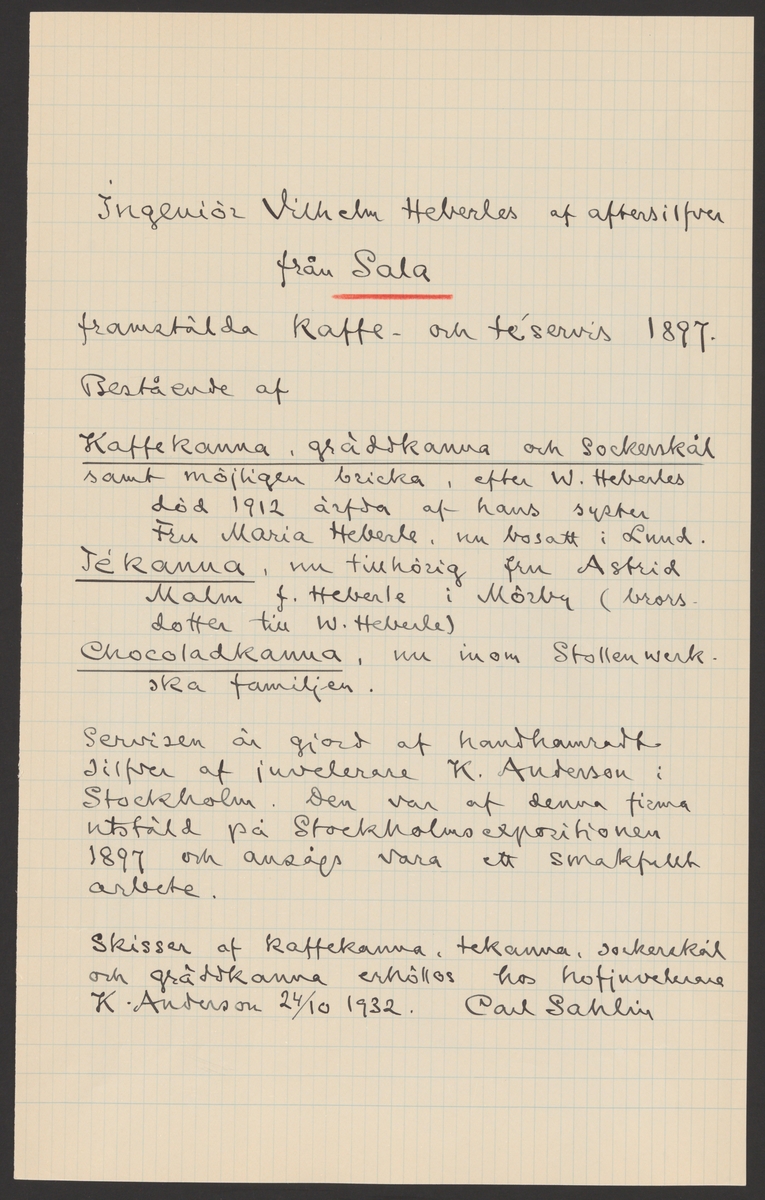 Ingeniör Vilhelm Heberles af aftersilfver
från Sala
framstälda kaffe- och té'servis 1897.
Bestående af
Kaffekanna, gräddkanna och Sockerskål
samt möjligen bricka, efter W. Heberles
död 1912 ärfda af hans syster
Fru Maria Heberle, nu bosatt i Lund.
Tékanna, nu tillhörig fru Astrid
Malm f. Heberle i Mörby (brors-
dotter till W. Heberle)
Chocoladkanna, nu inom Stollenwerk-
ska familjen.
Servisen är gjord af handhamradt
silfver af juvelerare K. Anderson i
Stockholm. Den var af denna firma
utstäld på Stockholmsexpositionen
1897 och ansågs vara ett smakfullt
arbete.
Skisser af kaffekanna, tekanna, sockerskål
och gräddkanna erhöllos hos hofjuvelerare
K. Anderson 24/10 1932. Carl Sahlin